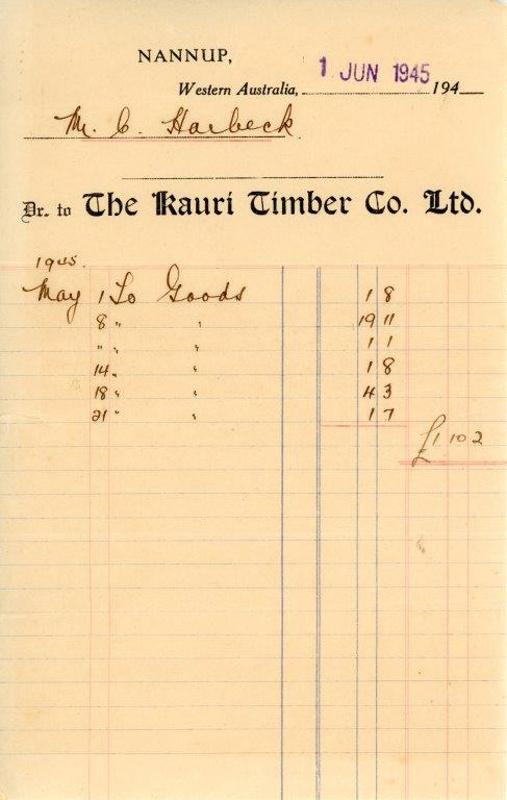 NANNUP,
Western Australia, 1 JUN 1945 194
Mr. C. Harbeck
Dr. to The Kauri Timber Co. Ltd.
1945.
May 1 To Goods 1 8
8 " " 19 11
" " " 1 1
14 " " 1 8
18 " " 4 3
21 " " 1 7
£1 10 2